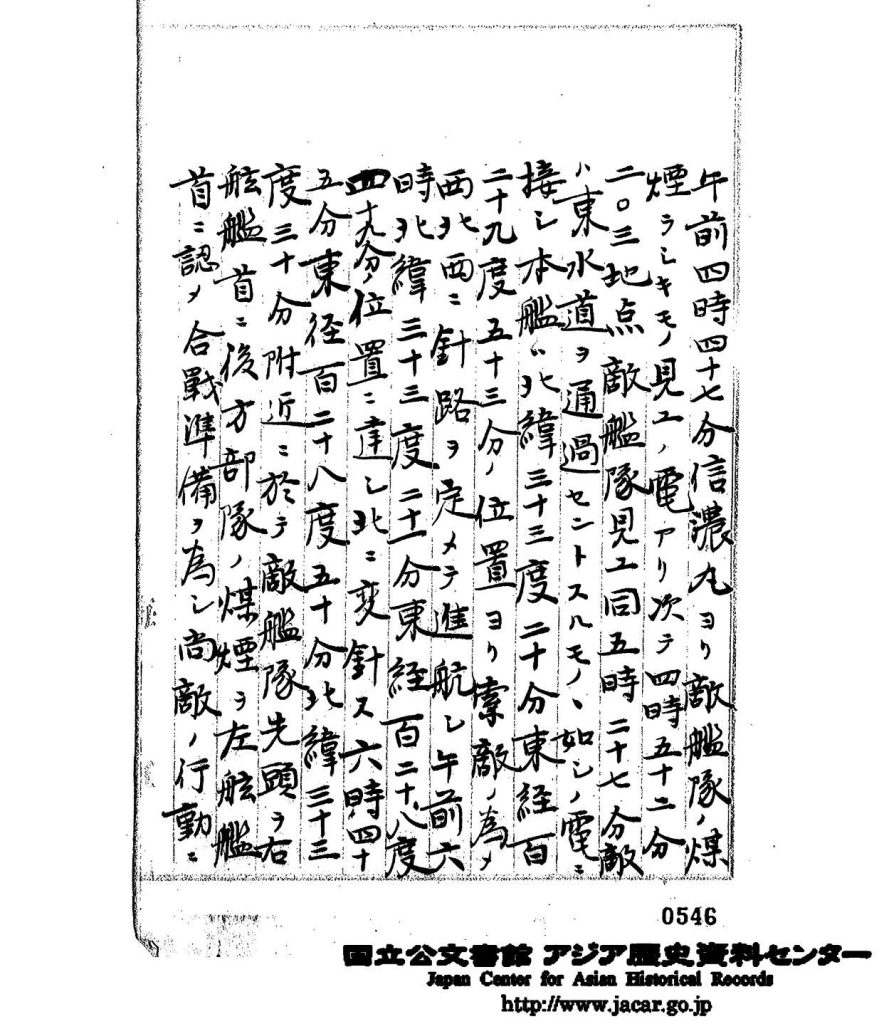 午前四時四十七分信濃丸ヨリ敵艦隊ノ煤
煙ラシキモノ見ユノ電アリ次テ四時五十二分
二〇三地点敵艦隊見ユ同五時二十七分敵
ハ東水道ヲ通過セントスルモノヽ如シノ電ニ
接シ本艦ハ北緯三十三度二十分東経百
二十九度五十三分ノ位置ヨリ索敵ノ為メ
西北西ニ針路ヲ定メテ進航シ午前六
時北緯三十三度二十一分東経百二十八度
四十九分ノ位置ニ達シ北ニ変針ス六時四十
五分東径百二十八度五十分北緯三十三
度三十分附近ニ於テ敵艦隊先頭ヲ右
舷艦首ニ後方部隊ノ煤煙ヲ左舷艦
首ニ認メ合戦準備ヲ為シ尚敵ノ行動ニ
0546
国立公文書館 アジア歴史資料センター
Japan Center for Asian Historical Records
http://www.jacar.go.jp